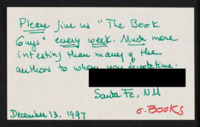 Please give us "The Book
Guys" every week. Much more
interesting than many of the
authors to whom you devote time.
Santa Fe, NM
December 13, 1997
BOOKS